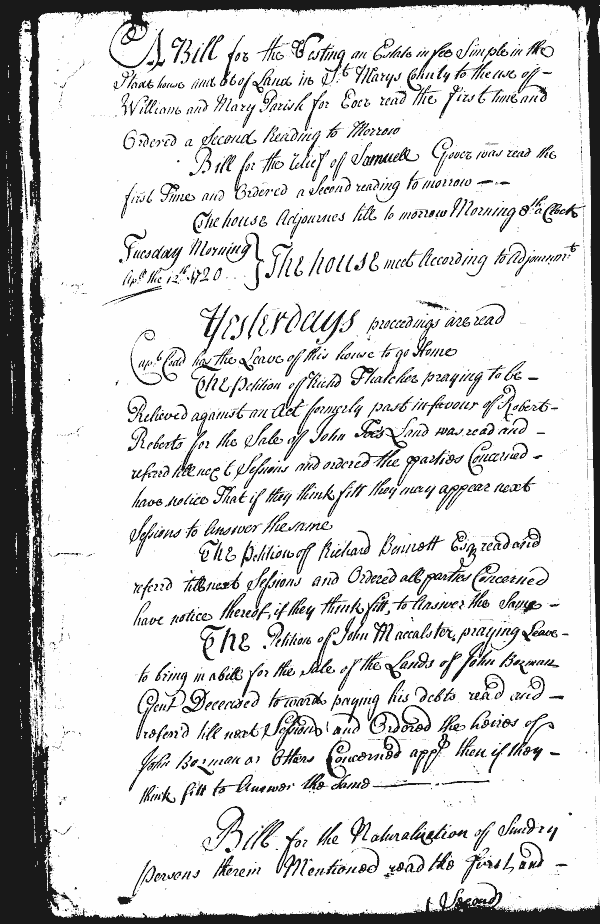 A Bill for the Vesting an Estate in fee Simple in the
State house and lot of Land in St Marys County to the use of -
William and Mary Parish for Ever read the first time and
Ordered a Second Reading to Morrow
Bill for the relief of Samuell Gover was read the
first Time and Ordered a Second reading to morrow - -
The house Adjournes till to morrow Morning 8th a Clock
Tuesday Morning
Apll the 12th 1720 } The house meet According to Adjournmt
Yesterdays proceedings are read
Capt Codd has the Leave of this house to go Home
The Petition of Richd Thatcher praying to be -
Relieved against an Act formerly past in favour of Robert -
Roberts for the Sale of John Land was read and -
referd till next Sessions and ordered the parties Concerned -
have notice That if they think fitt they may appear next
Sessions to Answer the same
The Petition of Richard Bennett Esqr read and
referrd till next Sessions and Ordered all parties Concerned
have notice thereof, if they think fitt, to Answer the Same -
The Petition of John Maccalster, praying Leave -
to bring in a bill for the Sale of the Lands of John Bozman
Gent Deceased towards paying his debts read and -
referrd till next Sessions and Ordered the heires of
John Bozman or others Concerned appr then if they -
think fitt to Answer the Same
Bill for the Naturalization of Sundry
persons therein Mentioned read the first, and -
Second